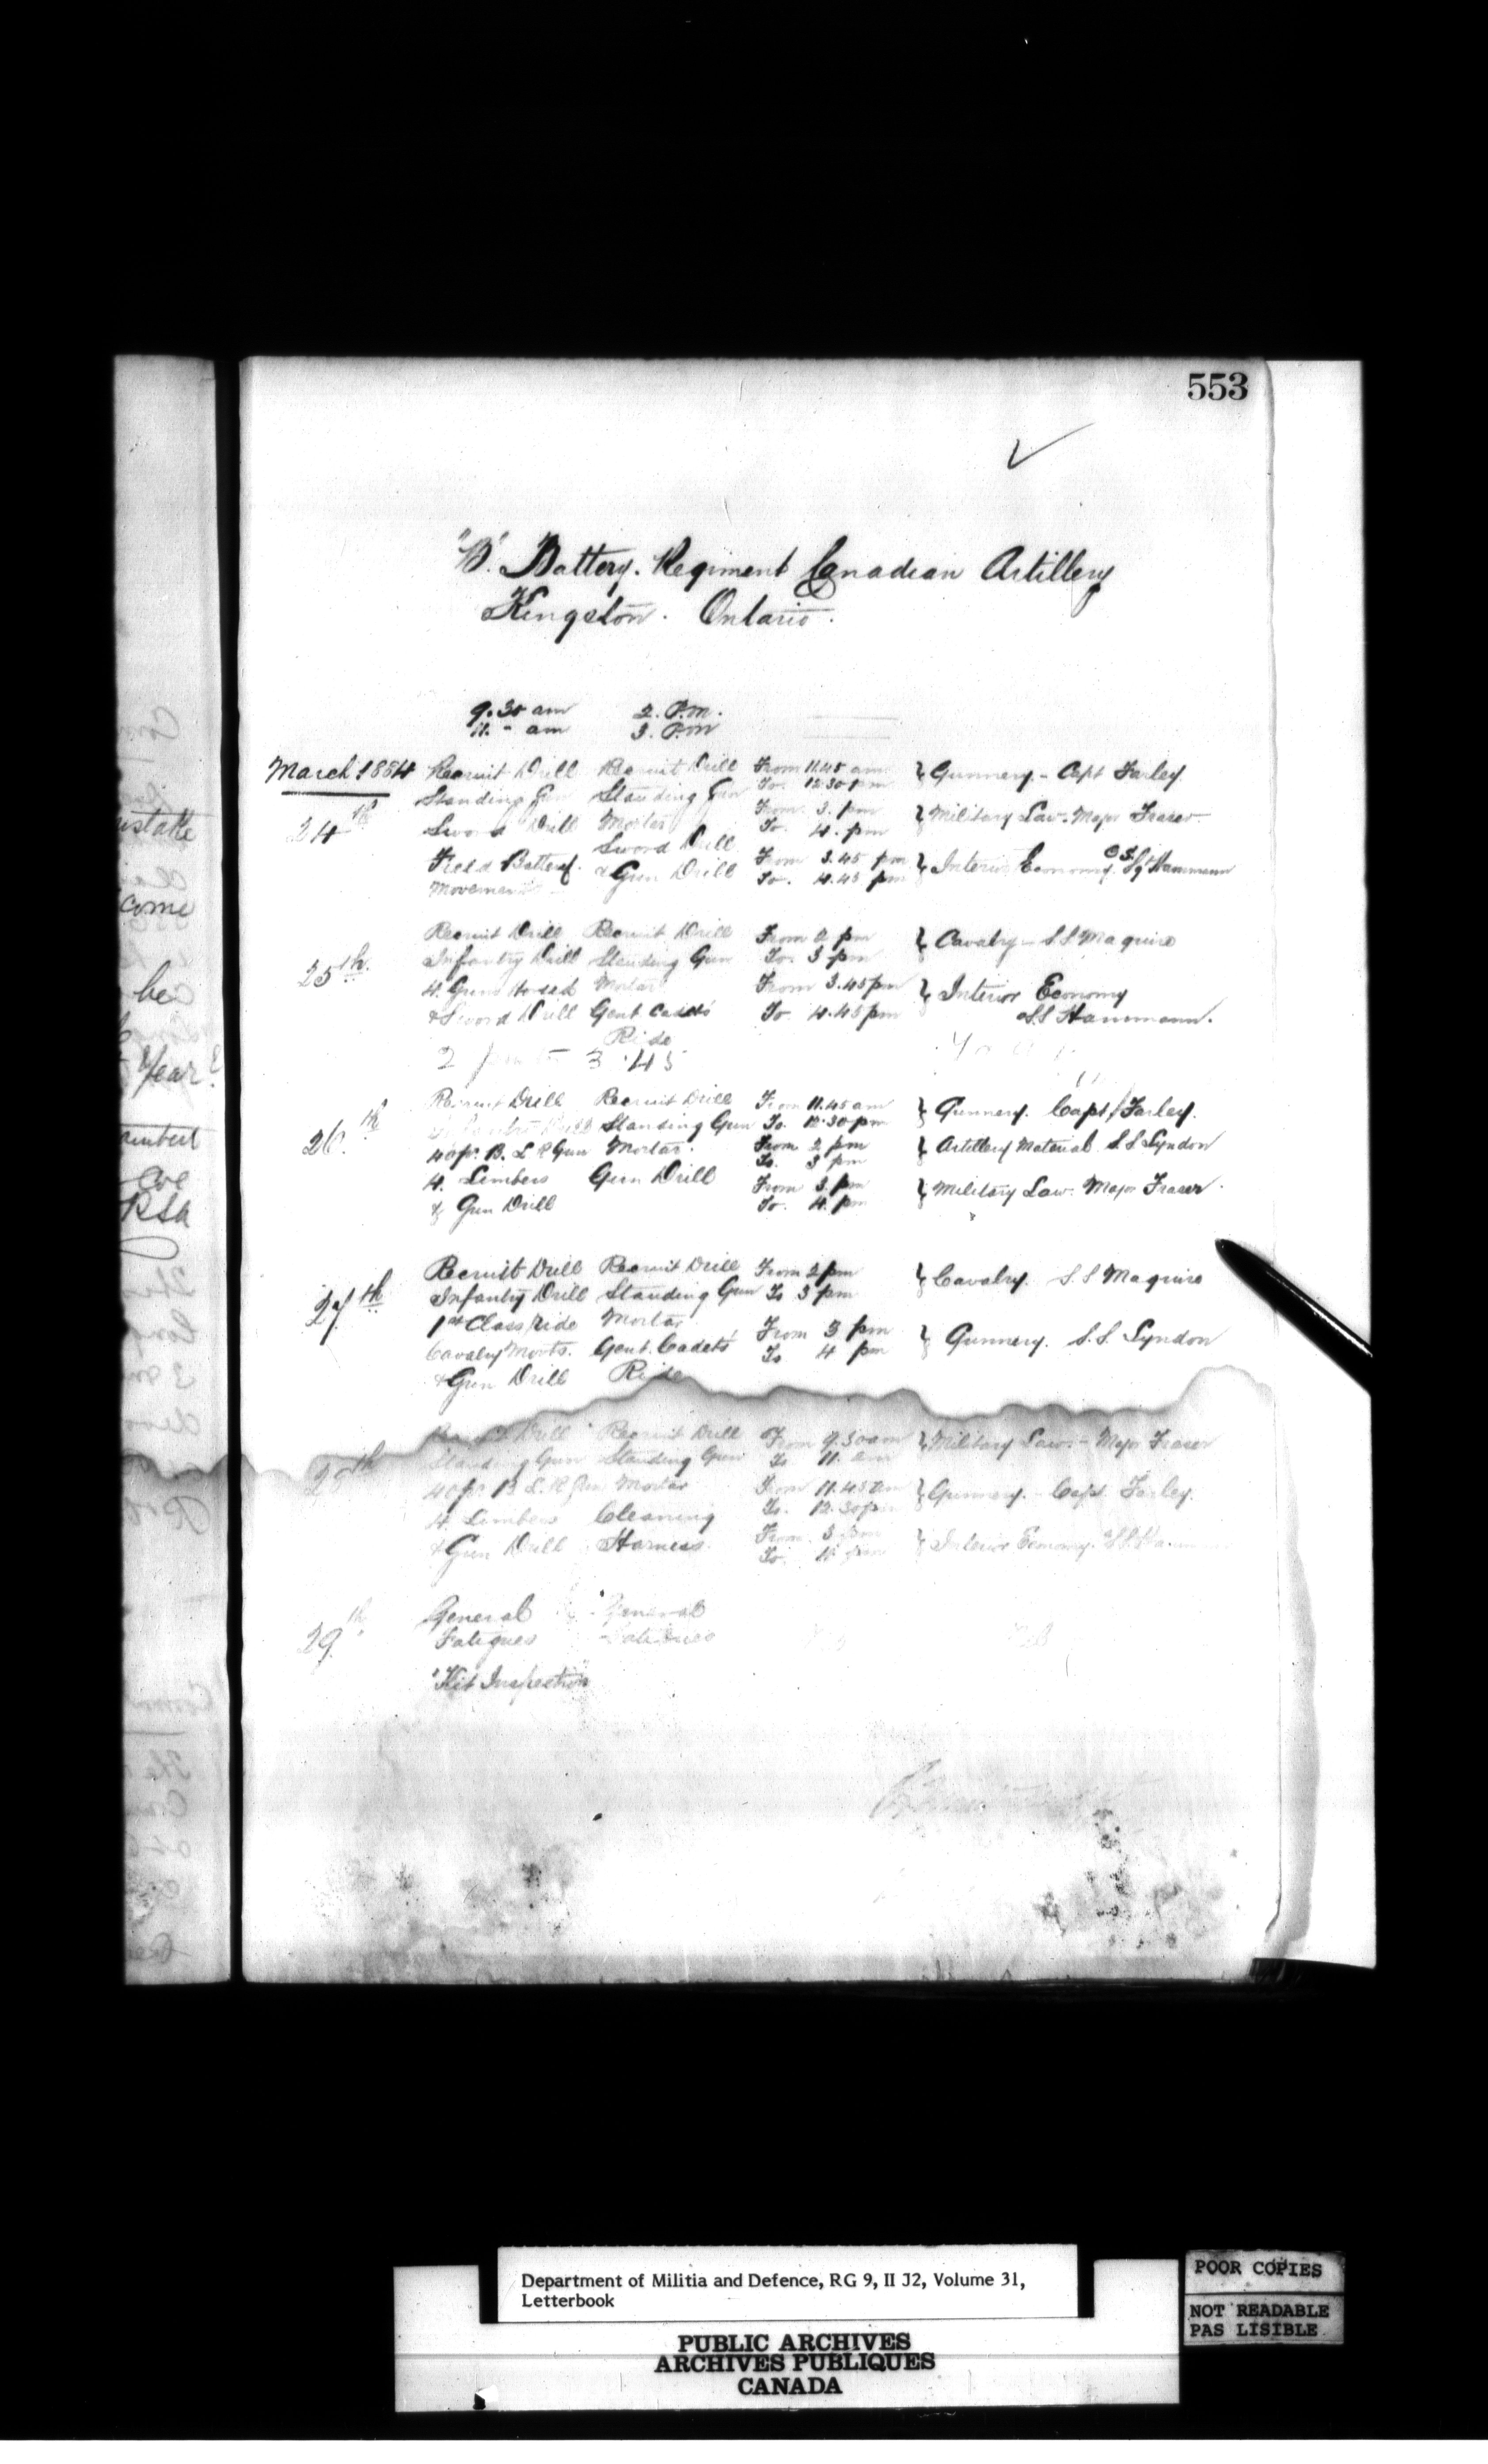 553
"B". Battery. Regiment Canadian Artillery
Kingston. Ontario.
9.30 am 2. P.m.
11. - am 3. P.m
March 1884 Recruit Drill Recruit Drill From 11.45 am } Gunnery - Capt Farley
Standing Gun Standing Gun To. 12.30 pm
24th Sword Drill Mortar From. 3. pm } Military Law. Major Fraser
Sword Drill To. 4. pm
Field Battery & Gun Drill From 3.45 pm } Interior Economy
Movements To. 4.45 pm
Recruit Drill Recruit Drill From 2 pm } Cavalry - S.S Maguire
25th. Infantry Drill Standing Gun To. 3 pm
4. Guns Mortar From 3.45 pm } Interior Economy
& Sword Drill Gent Cadets To. 4.45 pm S.S Hammann.
Ride
2 3.45
Recruit Drill Recruit Drill From 11.45 am } Gunnery. Capt Farley.
26th Standing Gun To. 12.30 pm
40 pr. B. L R Gun Mortar. From 2 pm } Artillery Material S.S Lyndon
To. 3 pm
4. Limbers Gun Drill From 3. pm } Military Law. Major Fraser.
& Gun Drill To. 4. pm
27th Recruit Drill Recruit Drill From 2 pm } Cavalry. S.S Maguire
Infantry Drill Standing Gun To 3 pm
1st Class ride Mortar From 3 pm } Gunnery. S.S. Lyndon
Cavalry Movts. Gent. Cadets' To 4 pm
& Gun Drill Ride
28th Recruit Drill Recruit Drill From 9.30 am } Military Law. - Major Fraser
Standing Gun Standing Gun To 11. am
40 pr B. L. R Gun Mortar From 11.45 am } Gunnery. - Capt. Farley.
4. Limbers Cleaning To. 12.30 pm
& Gun Drill Harness. From } Interior Economy.
To. 4 pm
29th General General
Fatigues Fatigues
"Kit Inspection"
istake
come
be
Year
Department of Militia and Defence, RG 9, II J2, Volume 31,
Letterbook
PUBLIC ARCHIVES
ARCHIVES PUBLIQUES
CANADA
POOR COPIES
NOT READABLE
PAS LISIBLE